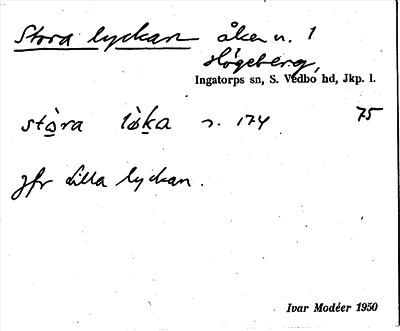 Stora lyckan åker n. 1
Högeberg,
Ingatorps sn, S. Vedbo hd, Jkp. l.
stò̱ra lø̀ḵa s. 174 75
jfr Lilla lyckan.
Ivar Modéer 1950